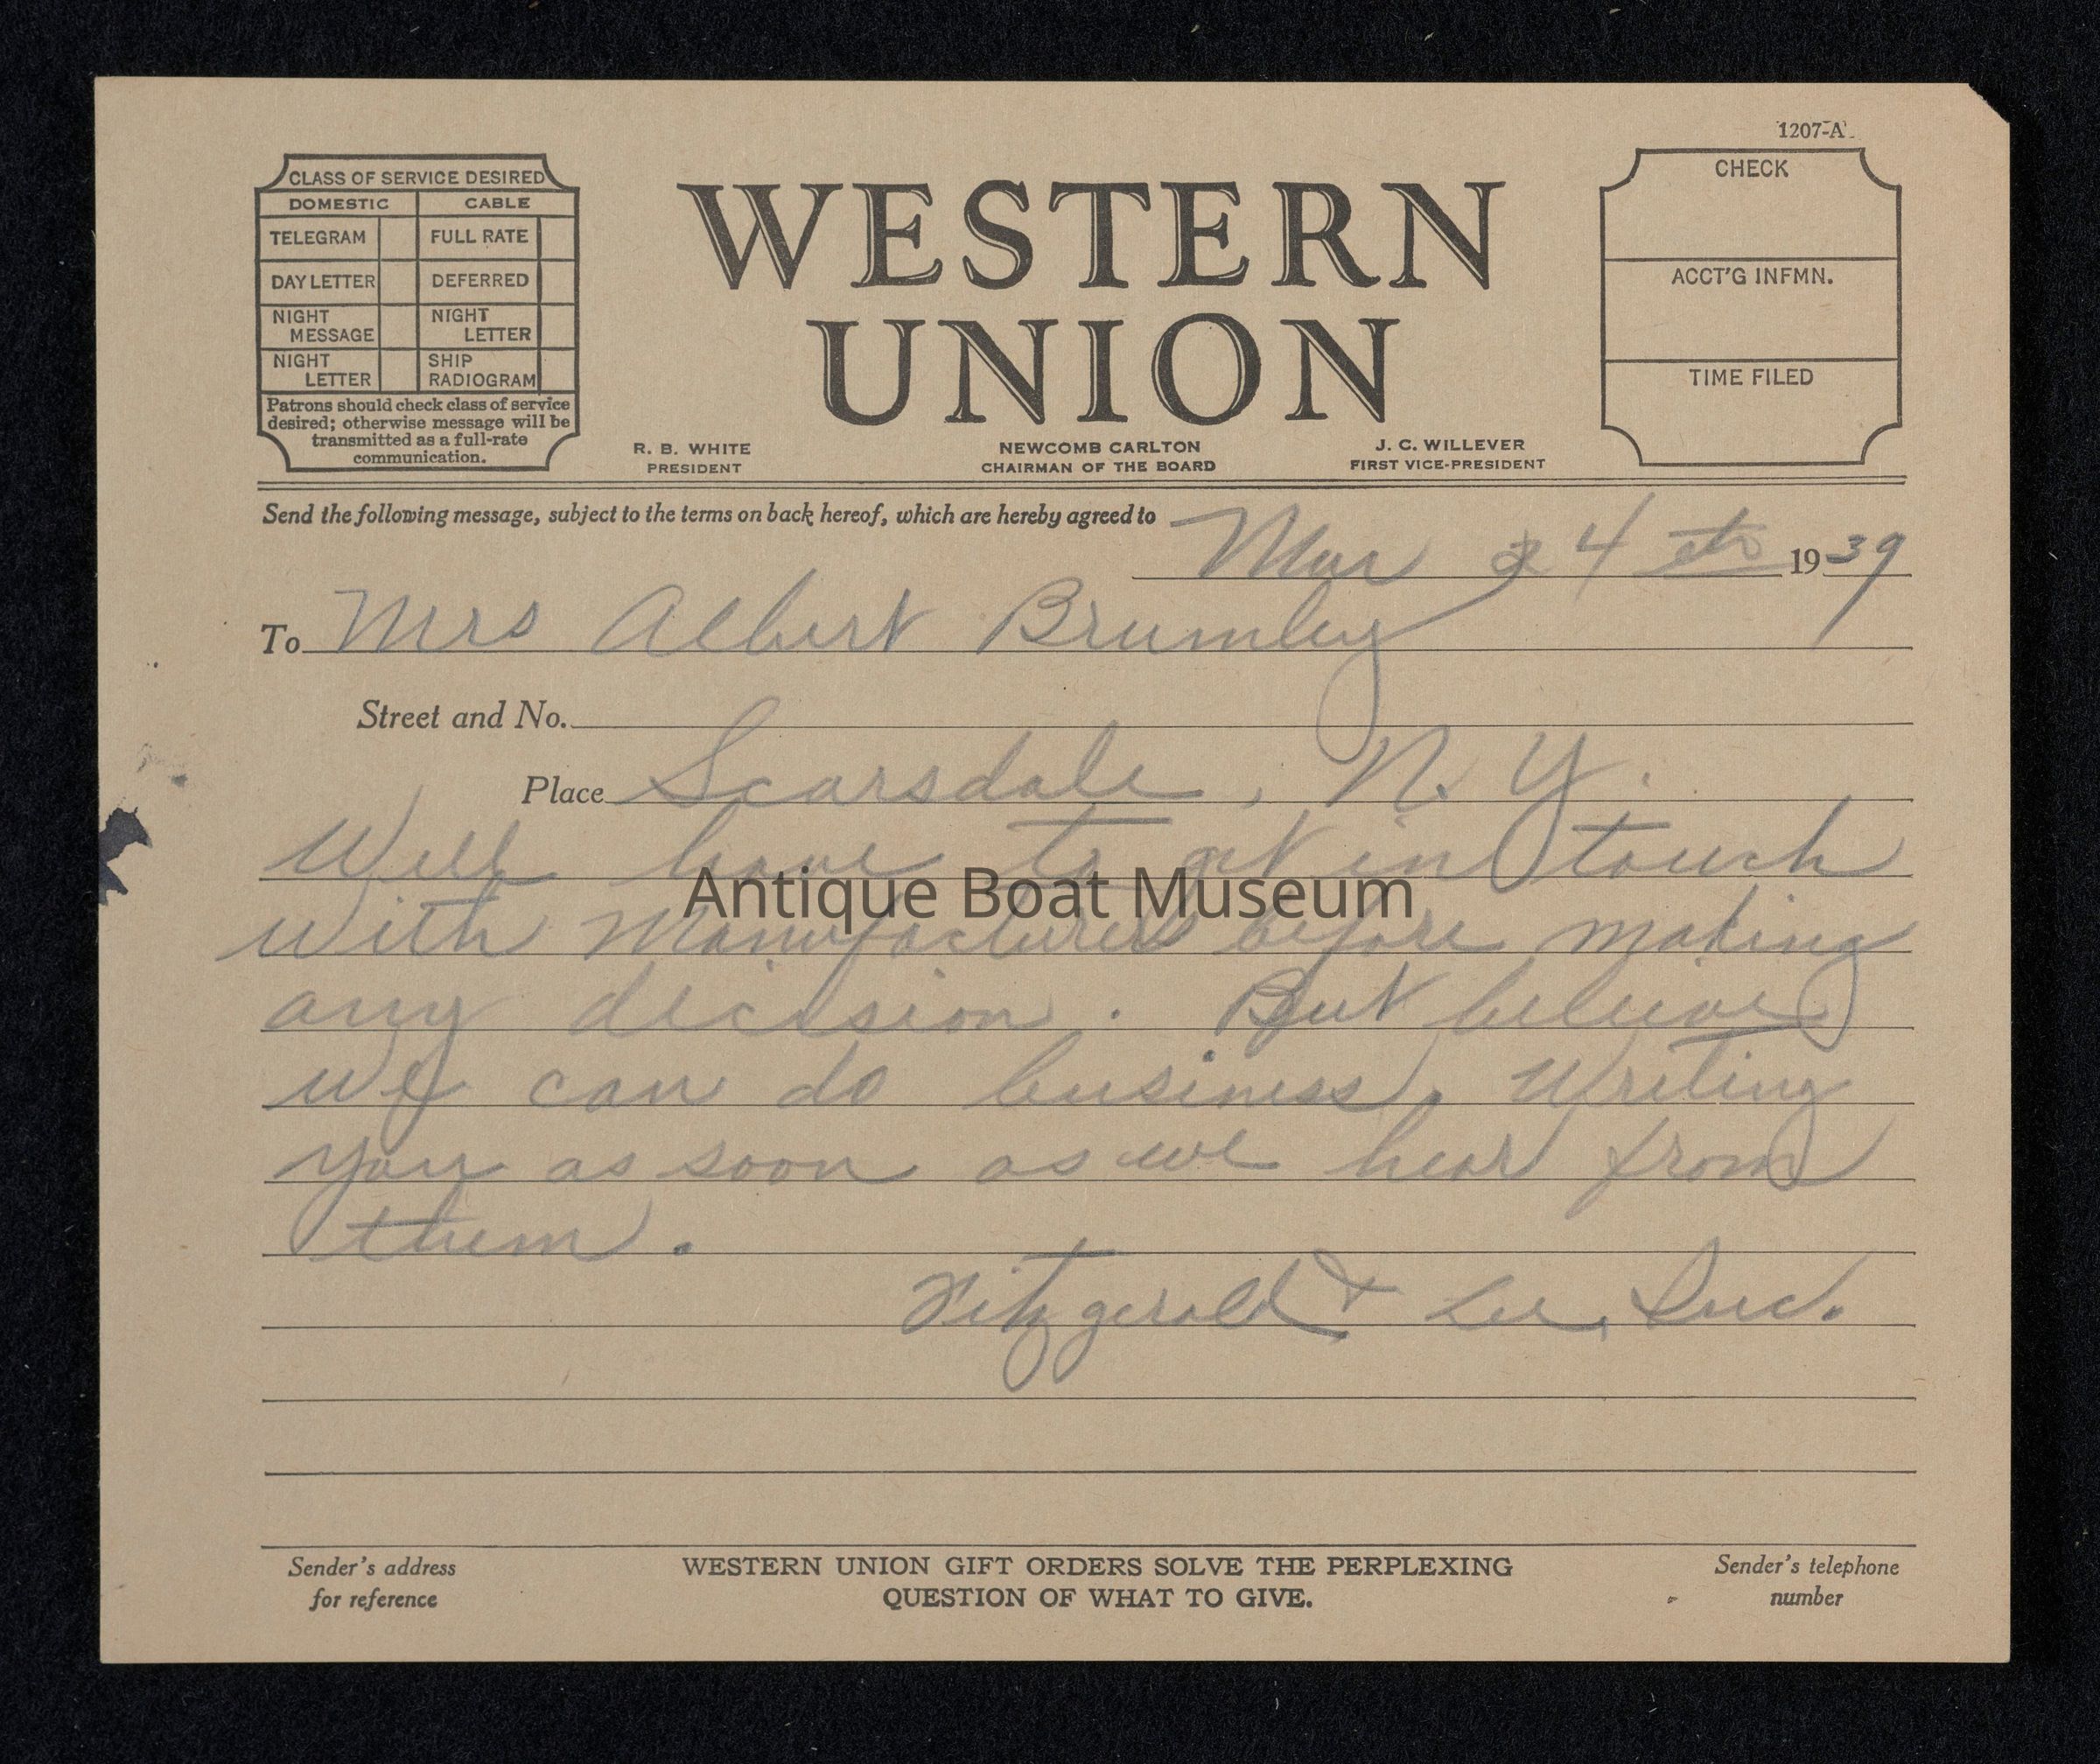 1207-A
CLASS OF SERVICE DESIRED
DOMESTIC CABLE
TELEGRAM FULL RATE
DAY LETTER DEFERRED
NIGHT MESSAGE NIGHT LETTER
NIGHT LETTER SHIP RADIOGRAM
Patrons should check class of service
desired; otherwise message will be
transmitted as a full-rate
communication.
WESTERN
UNION
R. B. WHITE
PRESIDENT
NEWCOMB CARLTON
CHAIRMAN OF THE BOARD
J. C. WILLEVER
FIRST VICE-PRESIDENT
CHECK
ACCT'G INFMN.
TIME FILED
Send the following message, subject to the terms on back hereof, which are hereby agreed to
Mar 24th 1939
To Mrs Albert Brumley
Street and No.
Place Scarsdale, N.Y.
Will have to get in touch
Antique Boat Museum
with Manufacturers before making
any decision. But believe
we can do business. Writing
you as soon as we hear from
them.
Fitzgerald & Lee, Inc.
Sender's address
for reference
WESTERN UNION GIFT ORDERS SOLVE THE PERPLEXING
QUESTION OF WHAT TO GIVE.
Sender's telephone
number